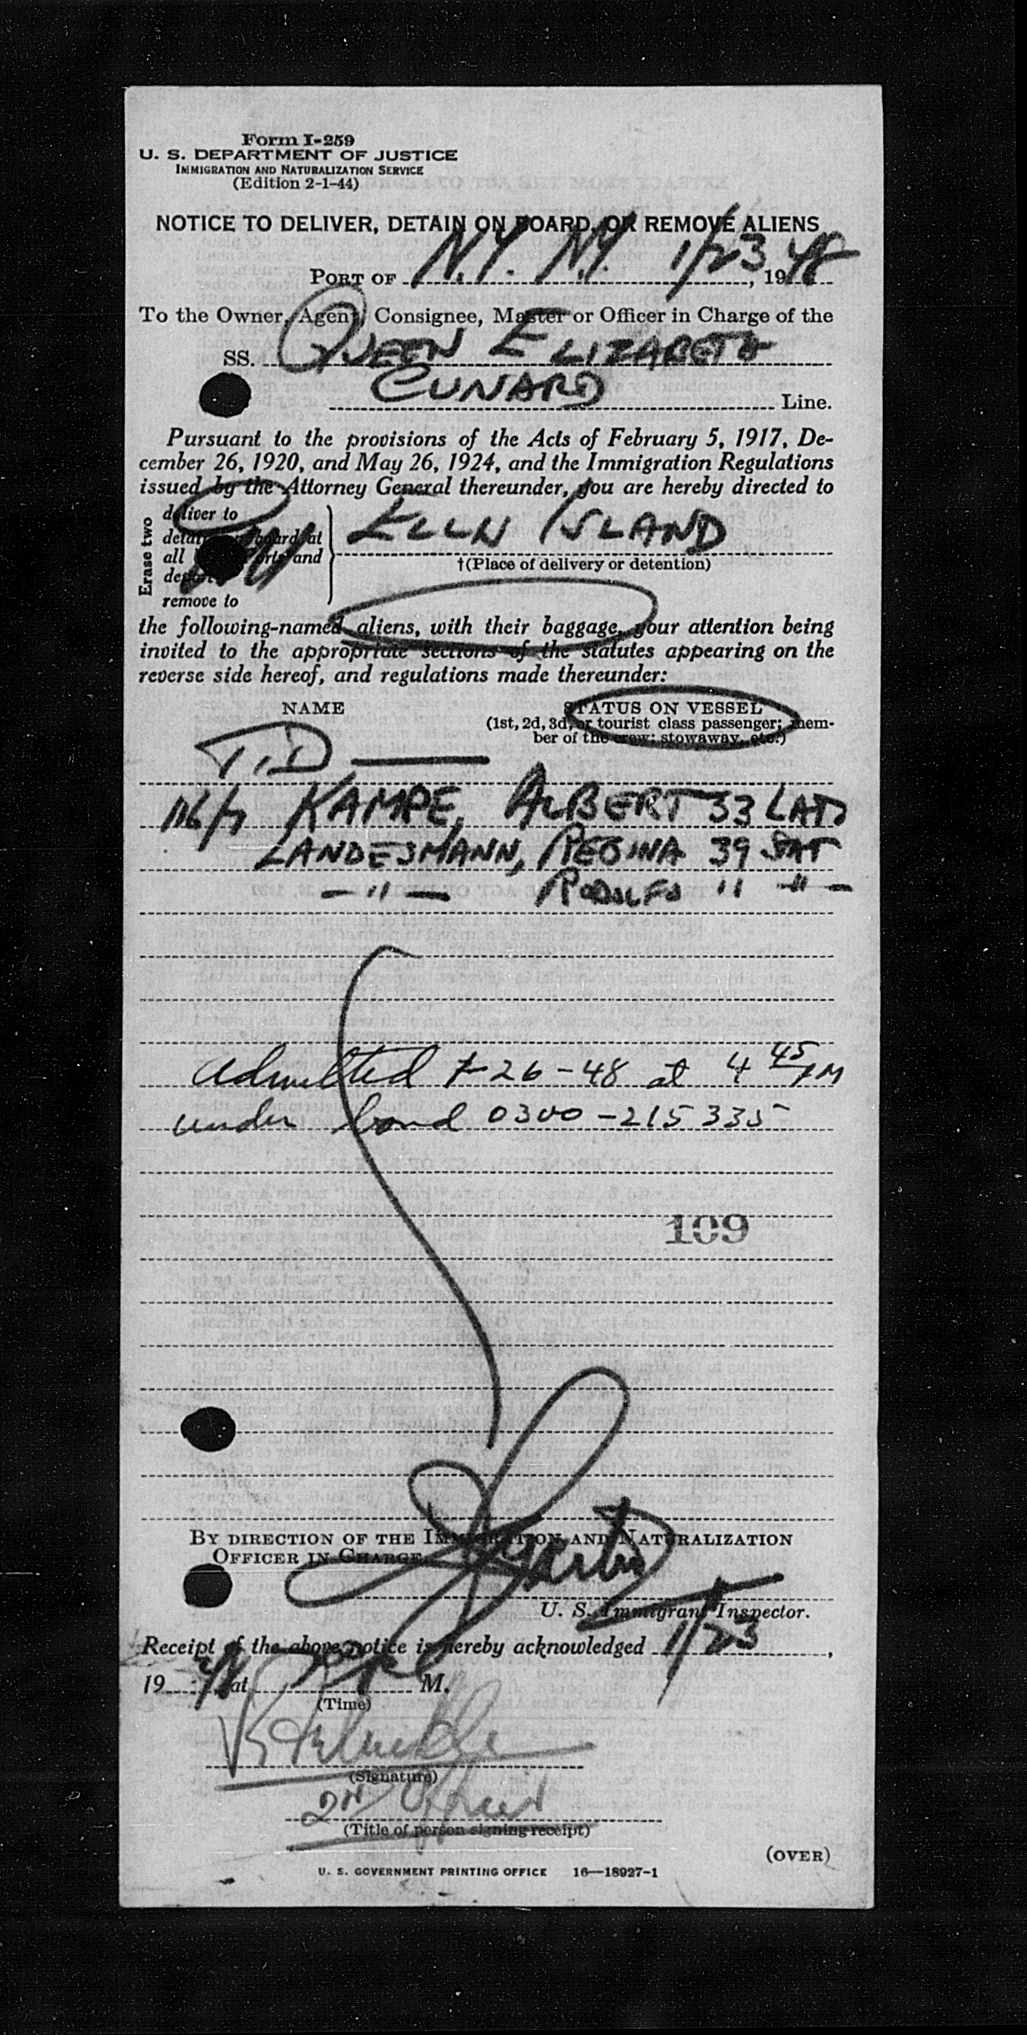 Form I-259
U. S. DEPARTMENT OF JUSTICE
IMMIGRATION AND NATURALIZATION SERVICE
(Edition 2-1-44)
NOTICE TO DELIVER, DETAIN ON BOARD, OR REMOVE ALIENS
PORT OF N.Y. N.Y. 1/23, 1948
To the Owner, Agent, Consignee, Master or Officer in Charge of the
SS. QUEEN ELIZABETH
CUNARD Line.
Pursuant to the provisions of the Acts of February 5, 1917, De-
cember 26, 1920, and May 26, 1924, and the Immigration Regulations
issued by the Attorney General thereunder, you are hereby directed to
Erase two
deliver to
detain on board at
all ports and
remove to
ISLAND
†(Place of delivery or detention)
the following-named aliens, with their baggage, your attention being
invited to the appropriate sections of the statutes appearing on the
reverse side hereof, and regulations made thereunder:
NAME STATUS ON VESSEL
(1st, 2d, 3d, or tourist class passenger; mem-
ber of the crew; stowaway, etc.)
T.D
KAMPE, ALBERT 33
LANDESMANN, REGINA 39
— " — RODOLFO " — " —
admitted 1-26-48 at 4 45 PM
under bond 0300-215335
109
BY DIRECTION OF THE IMMIGRATION AND NATURALIZATION
OFFICER IN CHARGE
U. S. Immigrant Inspector.
Receipt of the above notice is hereby acknowledged 1/23,
19 48 at M.
(Time)
(Signature)
2ND
(Title of person signing receipt)
(OVER)
U. S. GOVERNMENT PRINTING OFFICE 16—18927-1